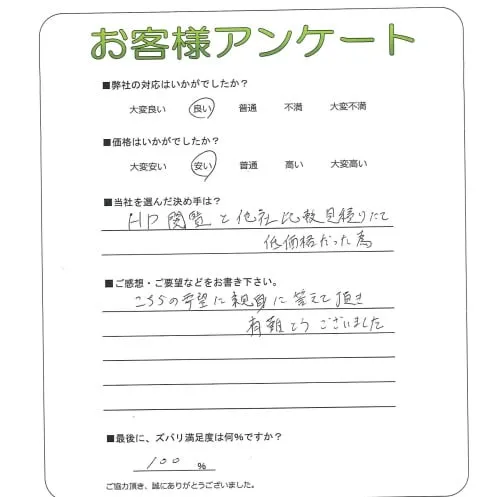 お客様アンケート
■弊社の対応はいかがでしたか？
大変良い 良い 普通 不満 大変不満
■価格はいかがでしたか？
大変安い 安い 普通 高い 大変高い
■当社を選んだ決め手は？
HP閲覧と他社比較見積りにて
低価格だった為
■ご感想・ご要望などをお書き下さい。
こちらの希望に親身に答えて頂き
有難とうございました
■最後に、ズバリ満足度は何%ですか？
100 %
ご協力頂き、誠にありがとうございました。